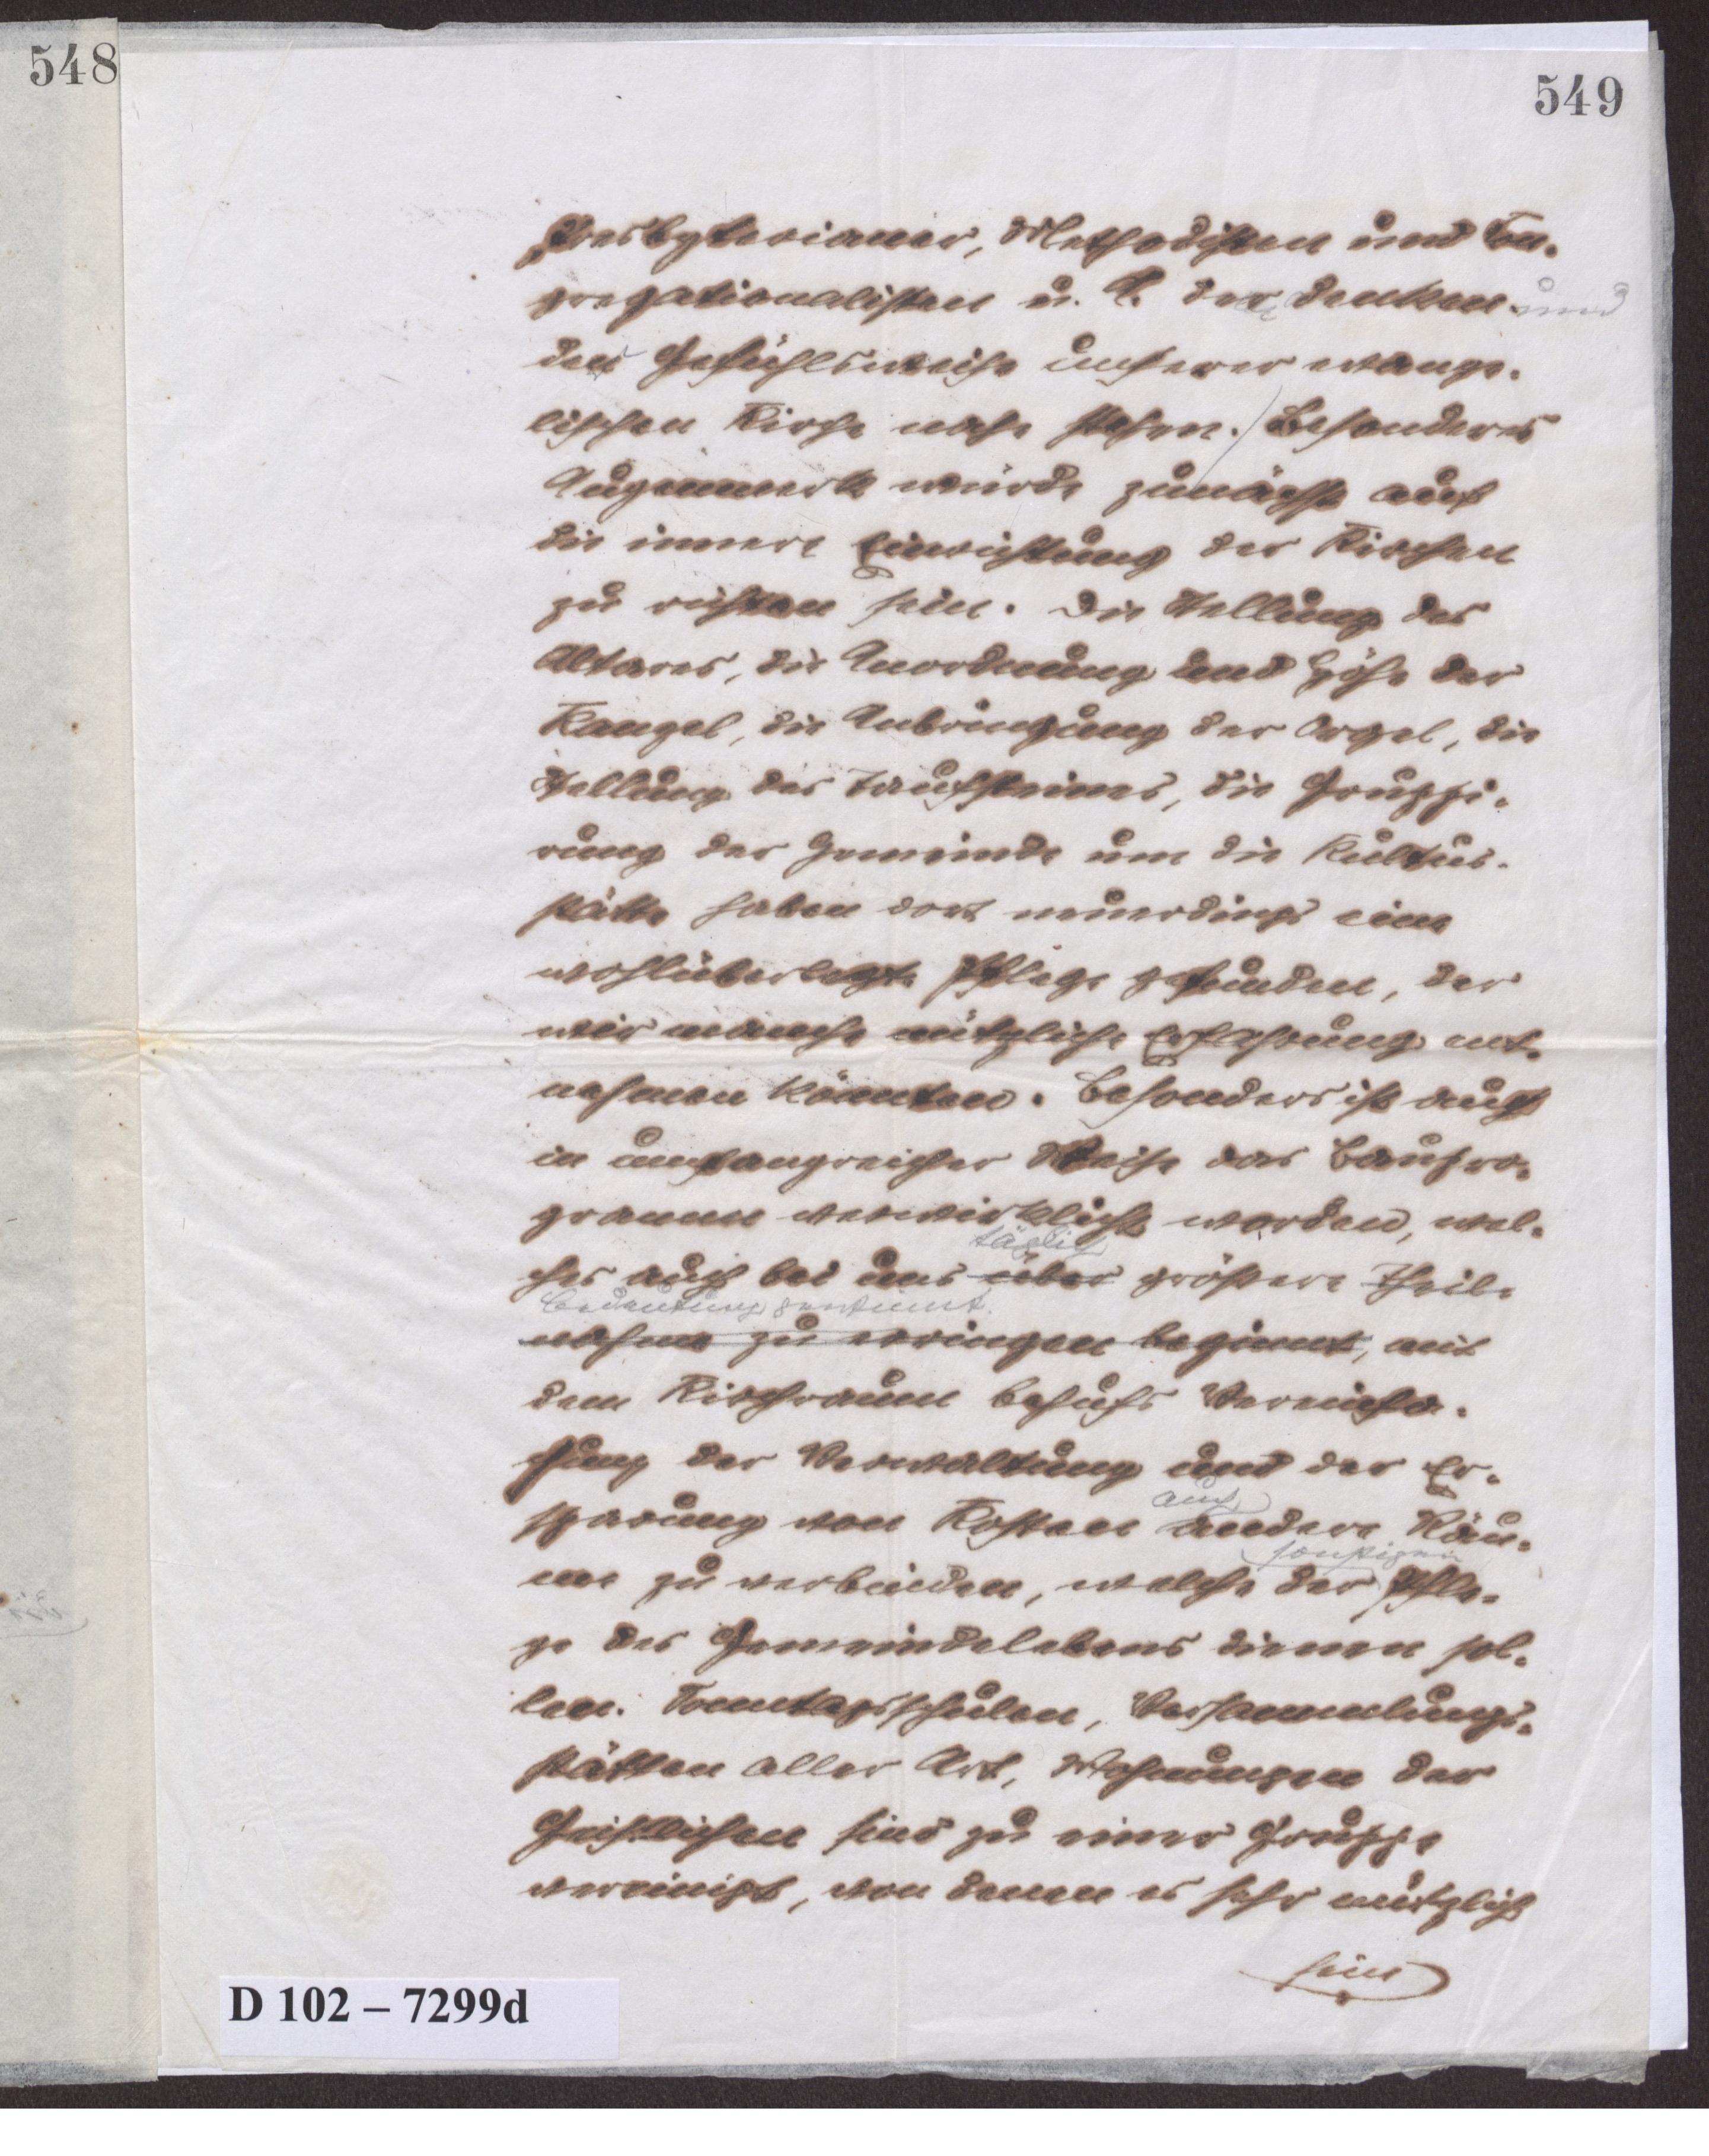 548
549
Presbyterianer, Methodisten und Con-
gregationalisten u. A. der denken und
der Gefühlsweise unserer evange-
lischen Kirche nahe stehen. Besonderes
Augenmerk würde zunächst auf
die innere Einrichtung der Kirchen
zu richten sein. Die Stellung des
Altares, die Anordnung und Höhe der
Kanzel, die Anbringung der Orgel, die
Stellung des Taufsteines, die Gruppi-
rung der Gemeinde um die Kultus-
stätte haben dort neuerdings eine
wohlüberlegte Pflege gefunden, der
wir manche nützliche Erfahrung ent-
nehmen könnten. Besonders ist auch
in umfangreicher Weise das Baupro-
gramm verwirklicht worden, wel-
täglich
ches auch bei uns über größere Theil-
Bedeutung gewinnt.
nahme zu erringen beginnt, mit
dem Kirchraum behufs Vereinfa-
chung der Verwaltung und der Er-
auch
sparung von Kosten andere Räu-
sonstigen
me zu verbinden, welche der Pfle-
ge des Gemeindelebens dienen sol-
len. Sonntagsschulen, Versammlungs-
stätten aller Art, Wohnungen der
Geistlichen sind zu einer Gruppe
vereinigt, von denen es sehr nützlich
sein
D 102 – 7299d